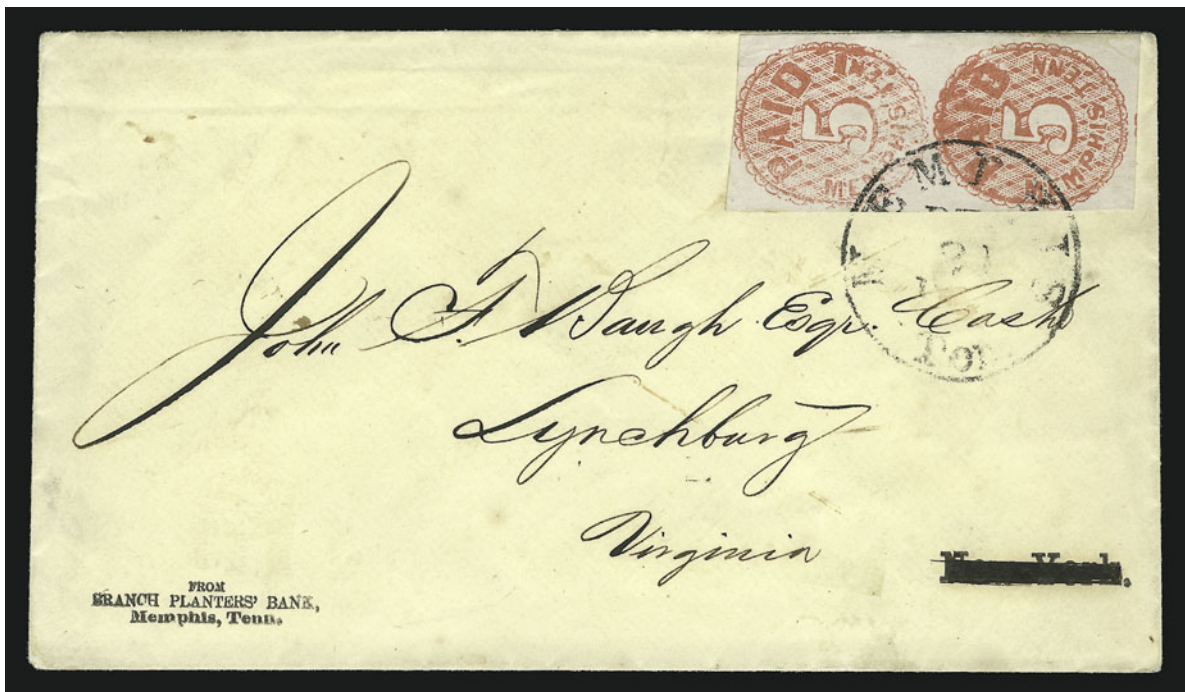 PAID 5 MEMPHIS, TENN
PAID 5 MEMPHIS, TENN
MEMPHIS
John F. Waugh Esqr. Cashr
Lynchburg
Virginia
New York.
FROM
BRANCH PLANTERS' BANK,
Memphis, Tenn.